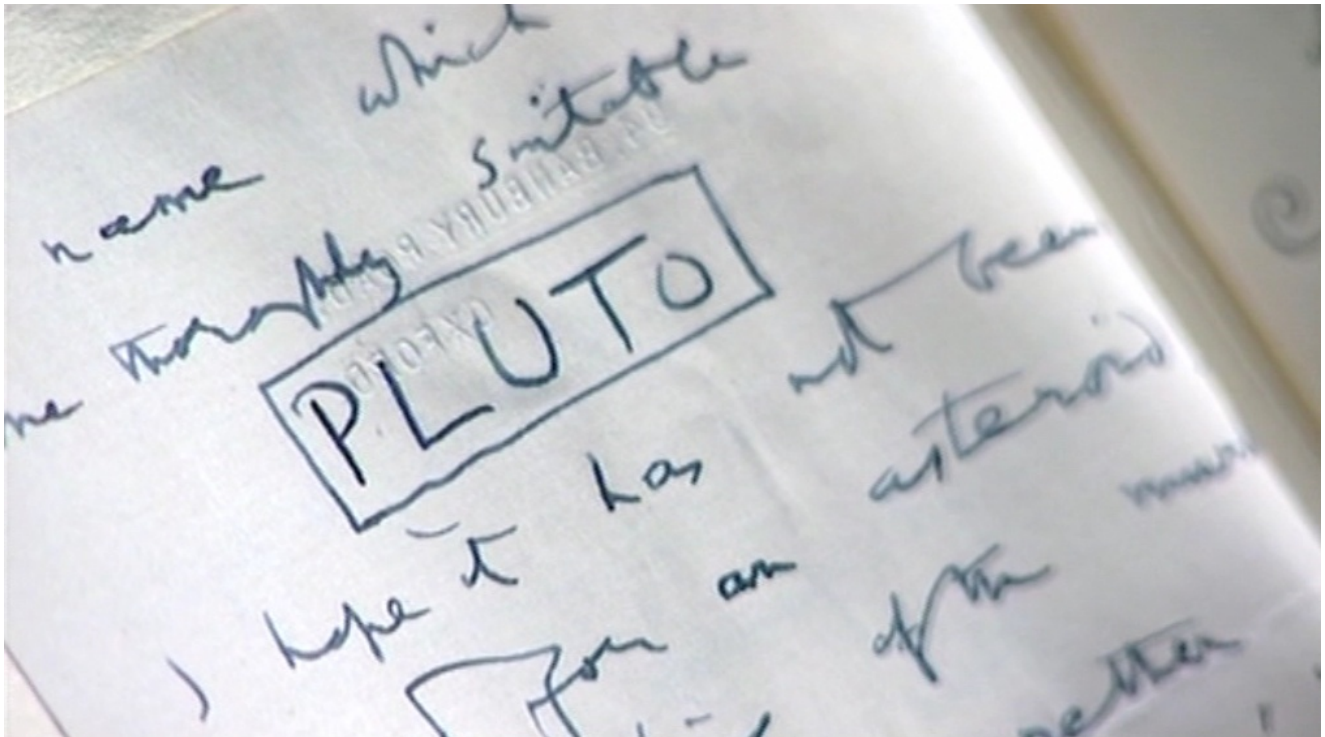 name which
suitable
me thoroughly
PLUTO
I hope it has not been
for an asteroid
of the